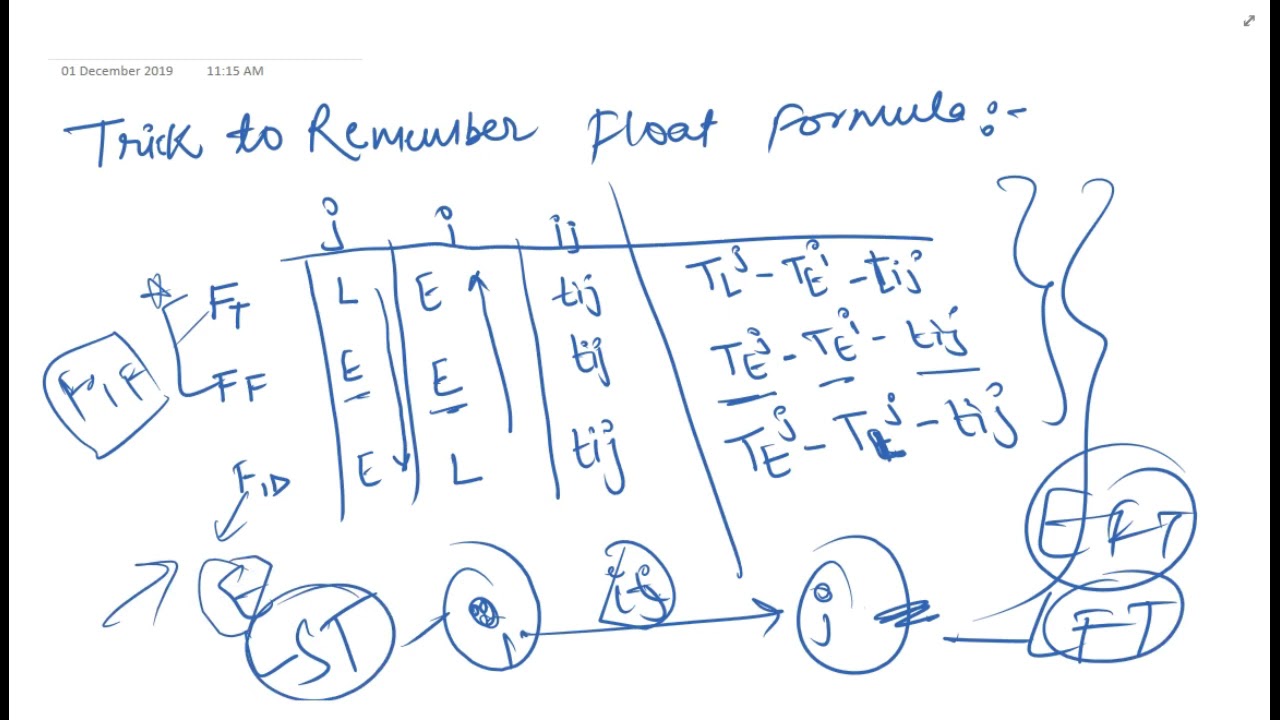 01 December 2019 11:15 AM
Trick to Remember Float Formula:-
j i ij
FT L E tij TL^j - TE^i - tij
FF E E tij TE^j - TE^i - tij
FID E L tij TE^j - TL^j - tij
E
LST i tij j
EFT
LFT